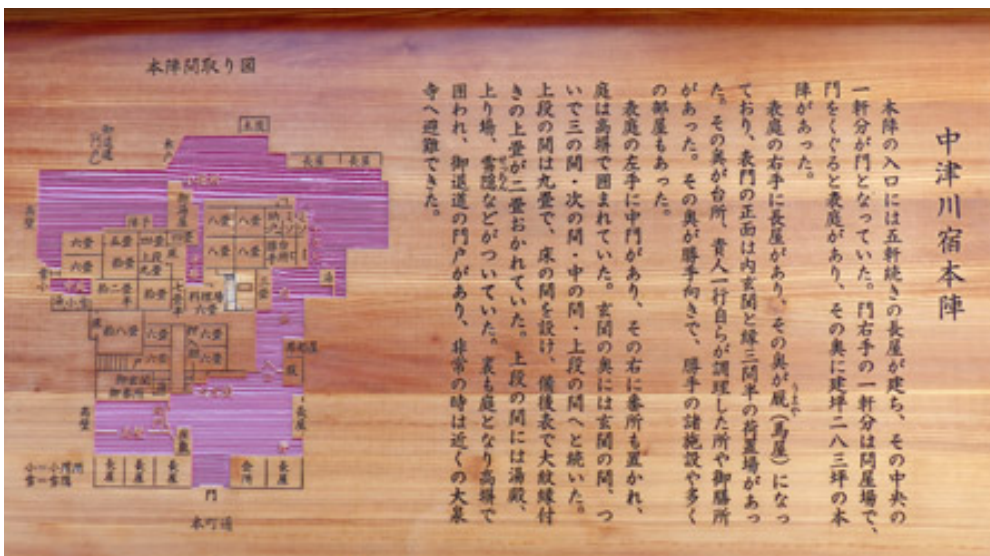 中津川宿本陣
本陣の入口には五軒続きの長屋が建ち、その中央の
一軒分が門となっていた。門右手の一軒分は問屋場で、
門をくぐると表庭があり、その奥に建坪二八三坪の本
陣があった。
表庭の右手に長屋があり、その奥が厩(馬屋)になっ
うまや
ており、表門の正面は内玄関と縁三間半の荷置場があっ
た。その奥が台所、貴人一行自らが調理した所や御膳所
があった。その奥が勝手向きで、勝手の諸施設や多く
の部屋もあった。
表庭の左手に中門があり、その右に番所も置かれ、
庭は高塀で囲まれていた。玄関の奥には玄関の間、つ
いで三の間・次の間・中の間・上段の間へと続いた。
上段の間は九畳で、床の間を設け、備後表で大紋縁付
きの上畳が二畳おかれていた。上段の間には湯殿、
上り場、雪隠などがついていた。裏も庭となり高塀で
せっちん
囲われ、御退道の門戸があり、非常の時は近くの大泉
寺へ避難できた。
本陣間取り図
土蔵
長屋 長屋
木戸
御退道
門戸
高塀
八畳 八畳
八畳 八畳
六畳 五畳 四畳
六畳 拾畳 上段
九畳
拾二畳
半
拾畳
七畳
半
料理場
六畳
三畳
拾八畳 六畳
六畳
押入
六畳
六畳
御玄関
高塀
長屋
長屋 長屋 長屋
会所
長屋
門
小=小用所
雪=雪隠
本町通